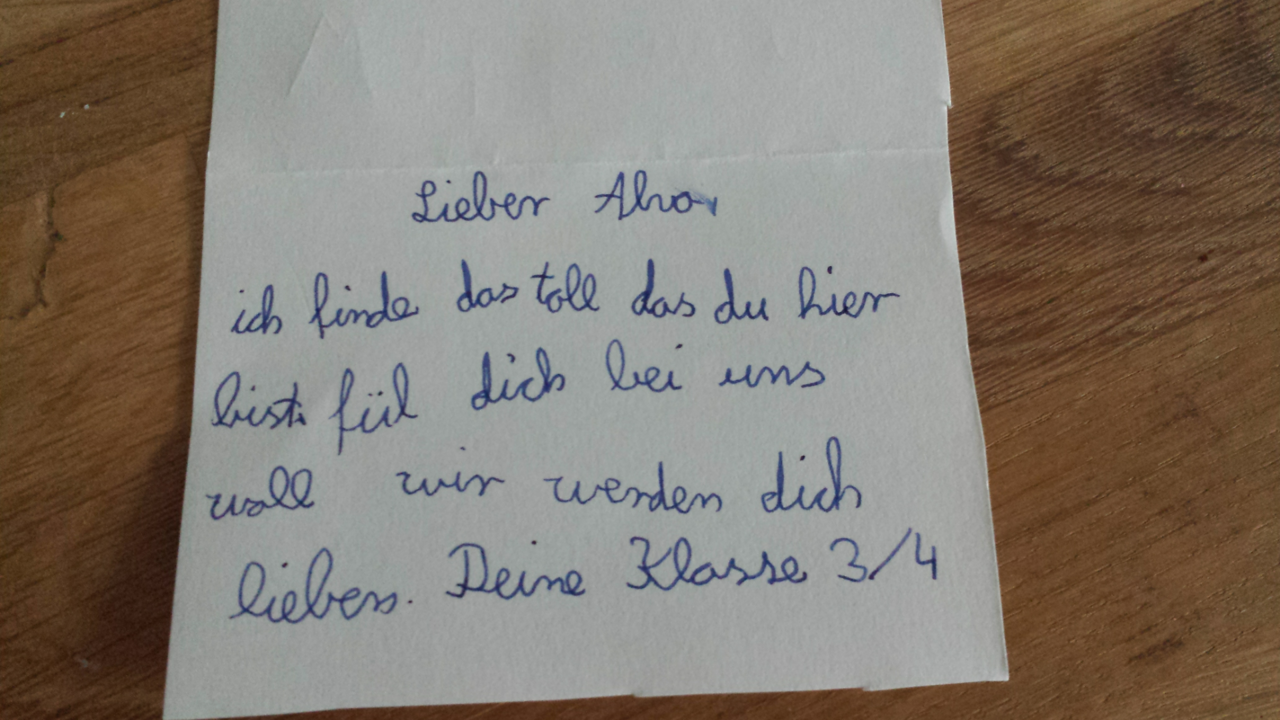 Lieber Alvo,
ich finde das toll das du hier
bist. fül dich bei uns
woll wir werden dich
lieben. Deine Klasse 3/4